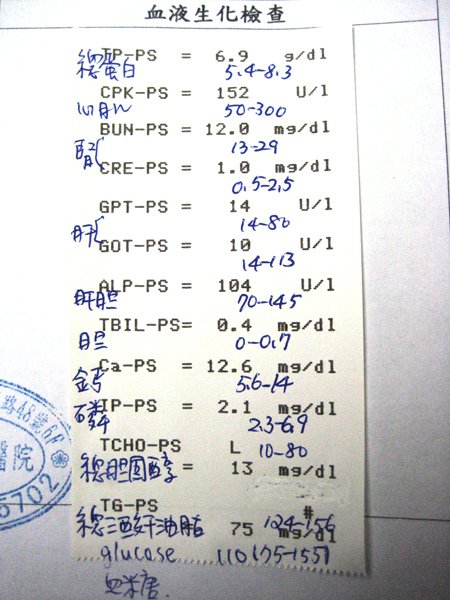 血液生化檢查
TP-PS = 6.9 g/dl
總蛋白 5.4-8.3
CPK-PS = 152 U/l
心肌 50-300
BUN-PS = 12.0 mg/dl
腎 13-29
CRE-PS = 1.0 mg/dl
0.5-2.5
GPT-PS = 14 U/l
14-80
肝
GOT-PS = 10 U/l
14-113
ALP-PS = 104 U/l
肝胆 70-145
TBIL-PS= 0.4 mg/dl
胆 0-0.7
Ca-PS = 12.6 mg/dl
鈣 5.6-14
IP-PS = 2.1 mg/dl
磷 2.3-6.9
TCHO-PS L 10-80
總胆固醇 = 13 mg/dl
TG-PS #
總三酸甘油脂 75 mg/dl 124-156
glucose 110
血糖
路48號6F
醫院
6702